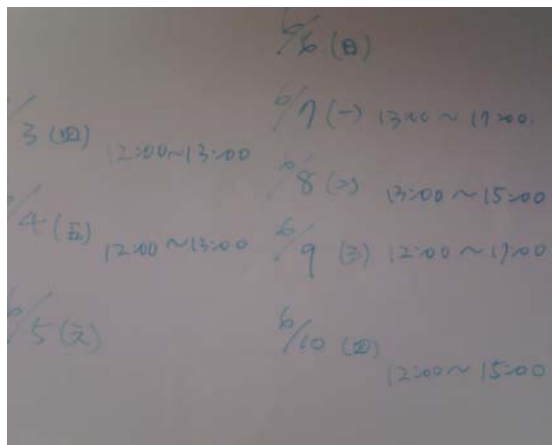 6/3 (四) 12:00~13:00
6/4 (五) 12:00~13:00
6/5 (六)
6/6 (日)
6/7 (一) 13:00~17:00
6/8 (二) 13:00~15:00
6/9 (三) 12:00~17:00
6/10 (四) 12:00~15:00